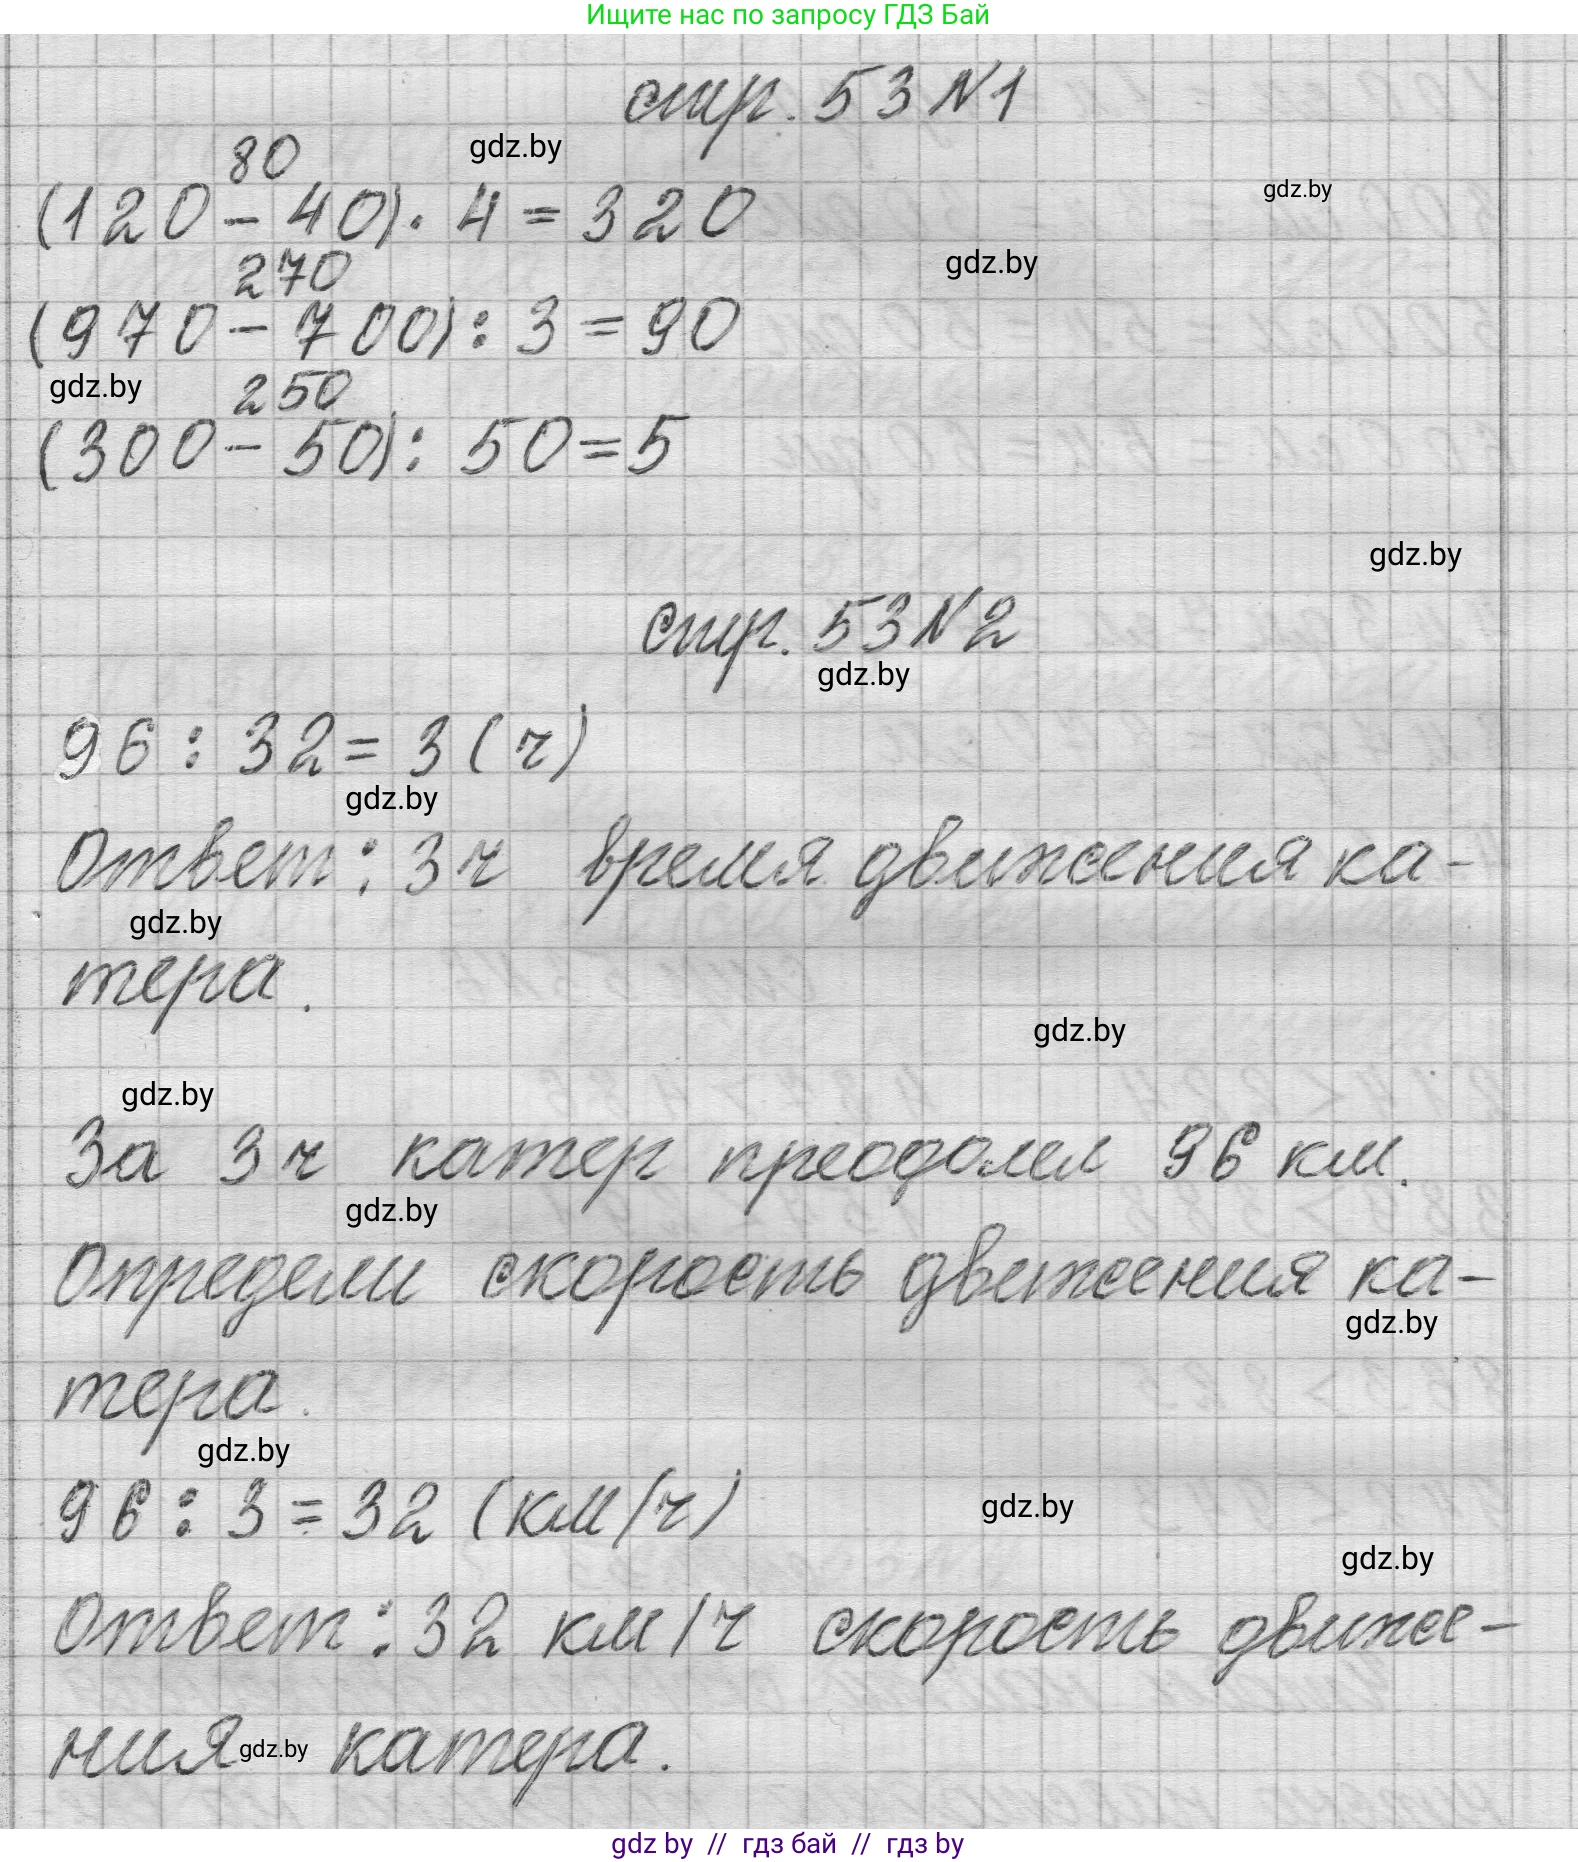 Ищите нас по запросу ГДЗ Бай
стр. 53 №1
gdz.by
80
gdz.by
(120 - 40) · 4 = 320
gdz.by
270
(970 - 700) : 3 = 90
gdz.by
250
(300 - 50) : 50 = 5
gdz.by
стр. 53 №2
gdz.by
96 : 32 = 3 (ч)
gdz.by
Ответ: 3 ч время движения ка-
gdz.by
тера.
gdz.by
gdz.by
За 3 ч катер преодолел 96 км.
gdz.by
Определи скорость движения ка-
gdz.by
тера.
gdz.by
96 : 3 = 32 (км/ч)
gdz.by
gdz.by
Ответ: 32 км/ч скорость движе-
ния катера.
gdz.by
gdz by // гдз бай // гдз by